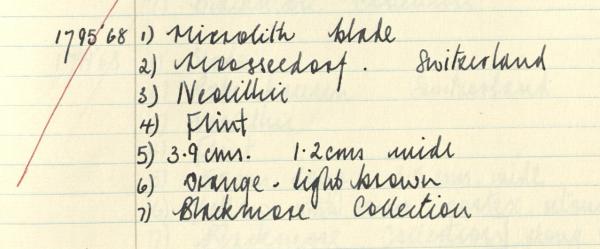 1795'68 1) Microlith blade
2) Moosseedorf. Switzerland
3) Neolithic
4) Flint
5) 3.9cms. 1.2cms wide
6) Orange - light brown
7) Blackmore Collection